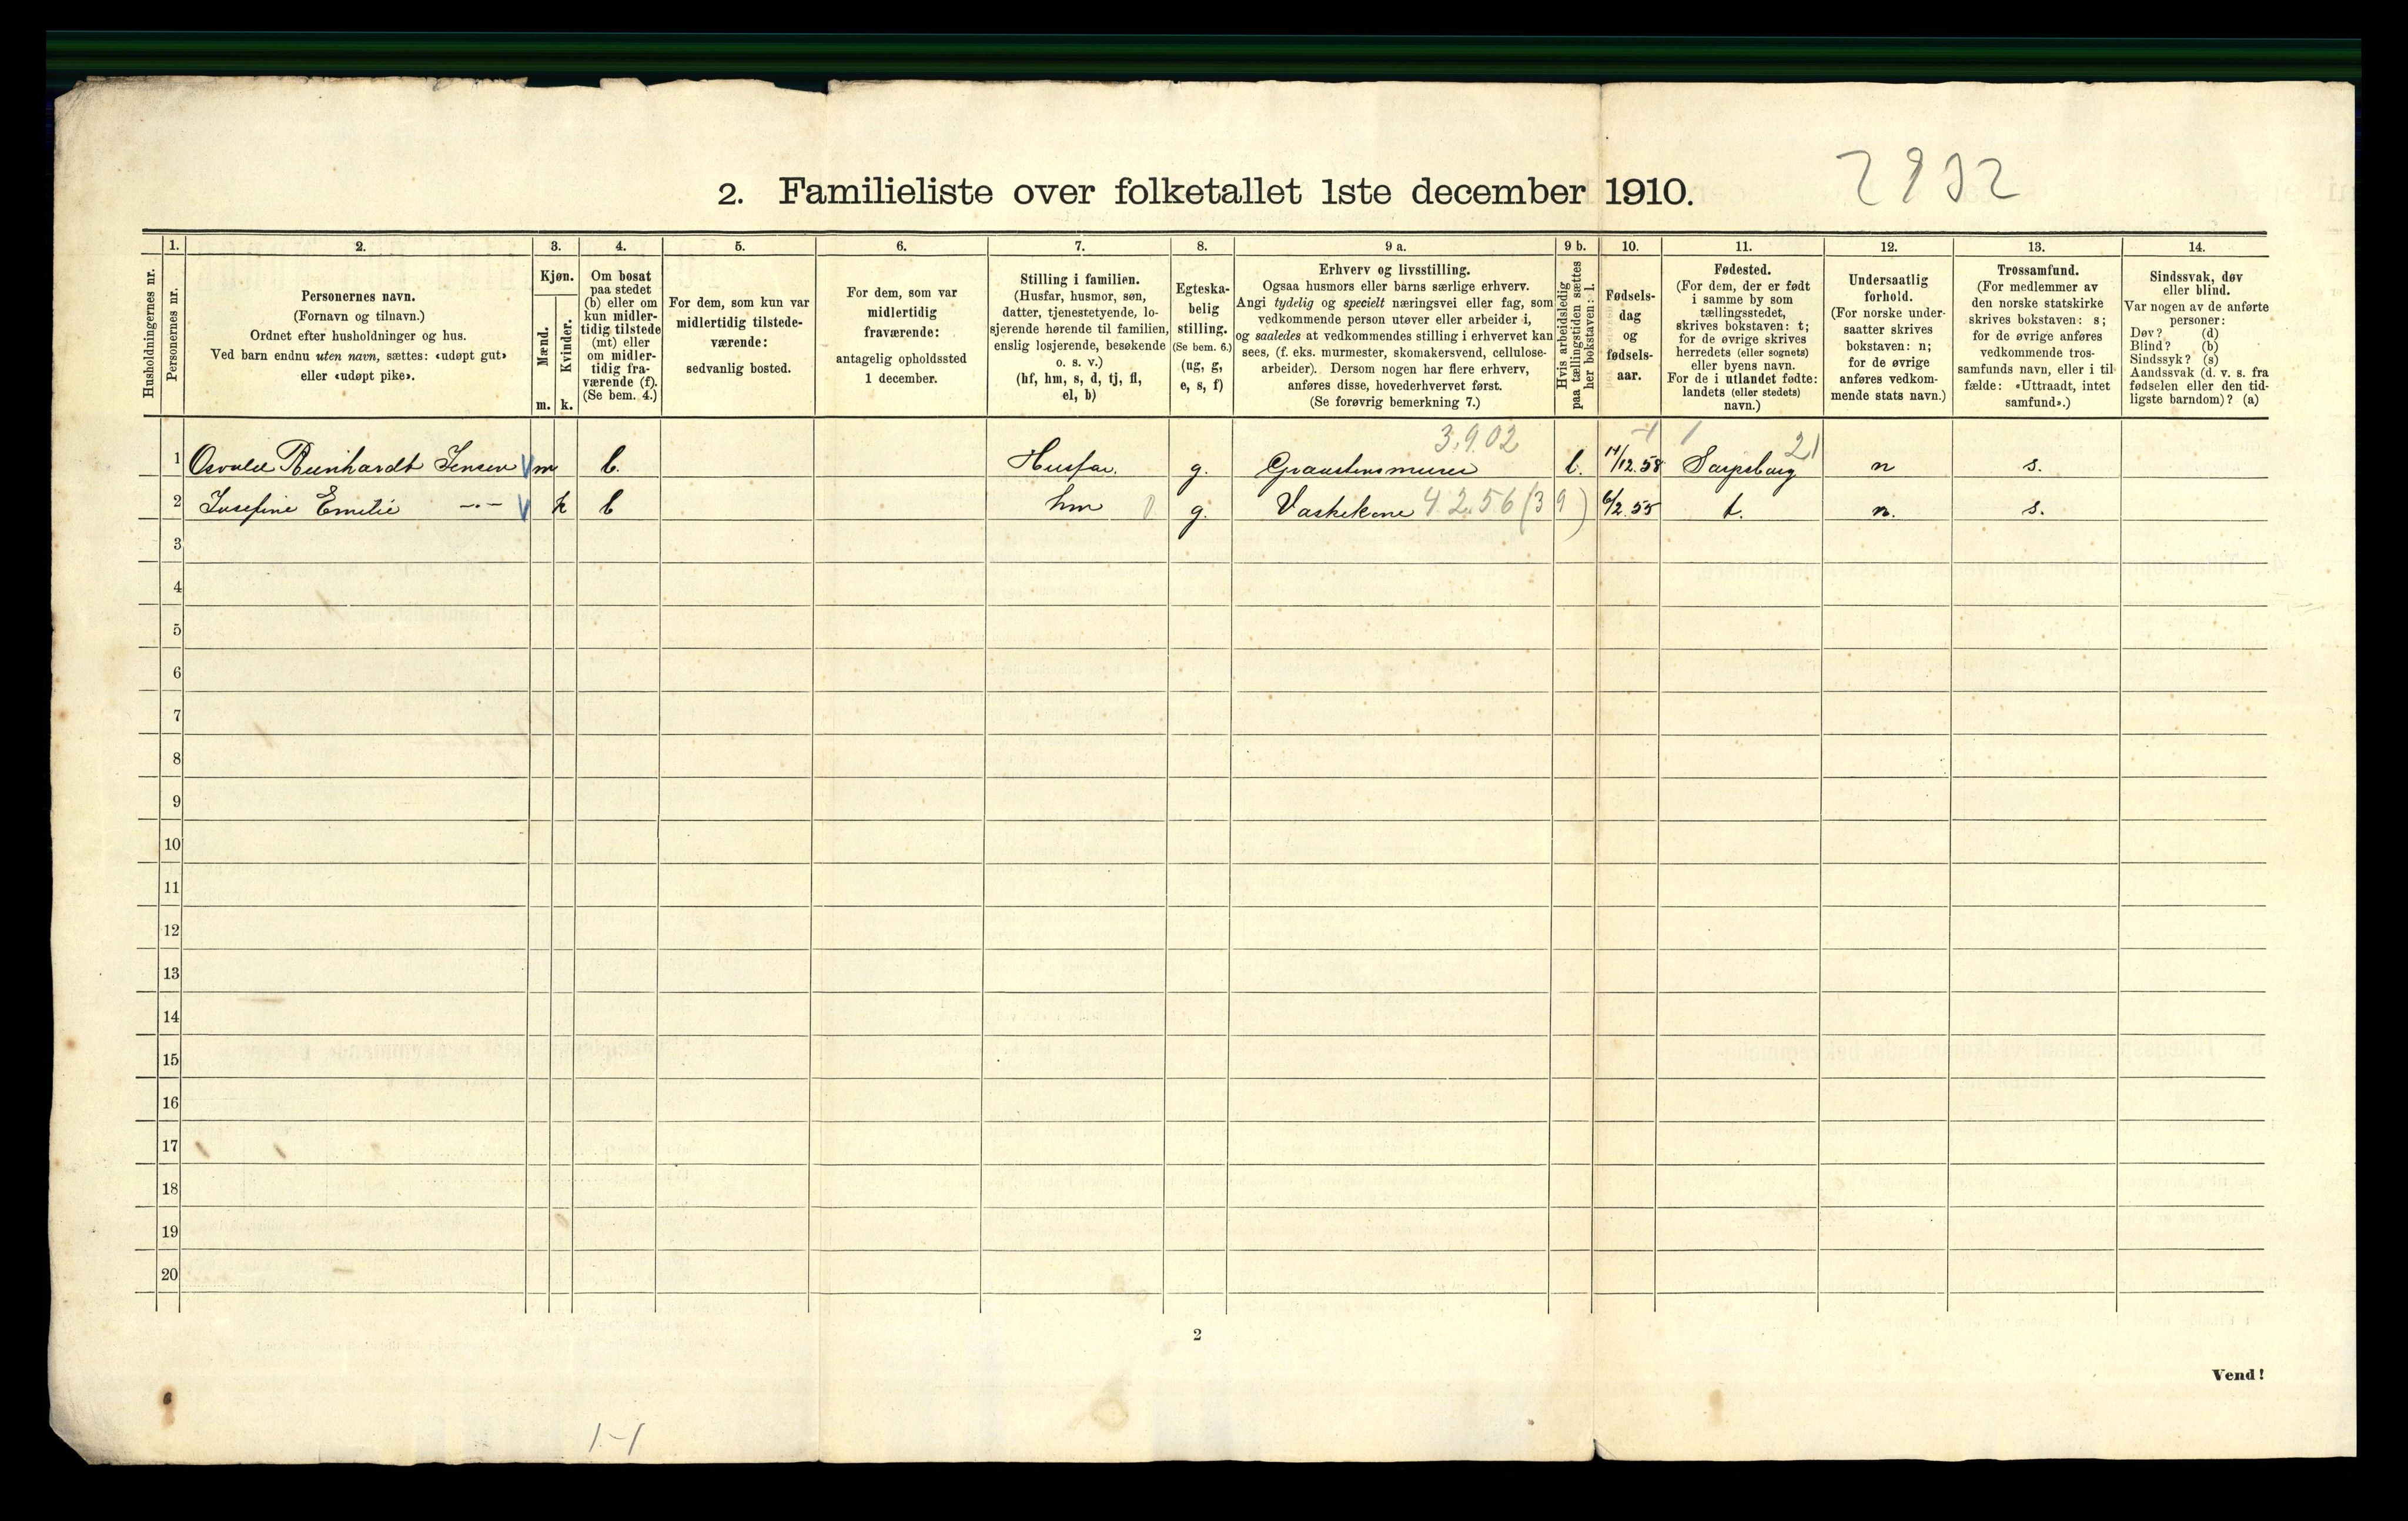 2. Familieliste over folketallet 1ste december 1910.
1. 2. 3. 4. 5. 6. 7. 8. 9 a. 9 b. 10. 11. 12. 13. 14.
Husholdningernes nr.
Personernes nr.
Personernes navn.
(Fornavn og tilnavn.)
Ordnet efter husholdninger og hus.
Ved barn endnu uten navn, sættes: «udøpt gut»
eller «udøpt pike».
Kjøn.
Mænd.
Kvinder.
m. k.
Om bosat
paa stedet
(b) eller om
kun midler-
tidig tilstede
(mt) eller
om midler-
tidig fra-
værende (f).
(Se bem. 4.)
For dem, som kun var
midlertidig tilstede-
værende:
sedvanlig bosted.
For dem, som var
midlertidig
fraværende:
antagelig opholdssted
1 december.
Stilling i familien.
(Husfar, husmor, søn,
datter, tjenestetyende, lo-
sjerende hørende til familien,
enslig losjerende, besøkende
o. s. v.)
(hf, hm, s, d, tj, fl,
el, b)
Egteska-
belig
stilling.
(Se bem. 6.)
(ug, g,
e, s, f)
Erhverv og livsstilling.
Ogsaa husmors eller barns særlige erhverv.
Angi tydelig og specielt næringsvei eller fag, som
vedkommende person utøver eller arbeider i,
og saaledes at vedkommendes stilling i erhvervet kan
sees, (f. eks. murmester, skomakersvend, cellulose-
arbeider). Dersom nogen har flere erhverv,
anføres disse, hovederhvervet først.
(Se forøvrig bemerkning 7.)
Hvis arbeidsledig
paa tællingstiden sættes
her bokstaven: l.
Fødsels-
dag
og
fødsels-
aar.
Fødested.
(For dem, der er født
i samme by som
tællingsstedet,
skrives bokstaven: t;
for de øvrige skrives
herredets (eller sognets)
eller byens navn.
For de i utlandet fødte:
landets (eller stedets)
navn.)
Undersaatlig
forhold.
(For norske under-
saatter skrives
bokstaven: n;
for de øvrige
anføres vedkom-
mende stats navn.)
Trossamfund.
(For medlemmer av
den norske statskirke
skrives bokstaven: s;
for de øvrige anføres
vedkommende tros-
samfunds navn, eller i til-
fælde: «Uttraadt, intet
samfund».)
Sindssvak, døv
eller blind.
Var nogen av de anførte
personer:
Døv? (d)
Blind? (b)
Sindssyk? (s)
Aandssvak (d. v. s. fra
fødselen eller den tid-
ligste barndom)? (a)
3.9.02 21
1 Osvald Reinhardt Jensen m b. Husfar. g. Graastensmurer l. 14/12.58 Sarpsborg n s.
2 Josefine Emilie —〃— k b hm g. Vaskekone 4 2.56 (3 9) 6/2.55 t. n. s.
3
4
5
6
7
8
9
10
11
12
13
14
15
16
17
18
19
20
2
Vend!
1-1